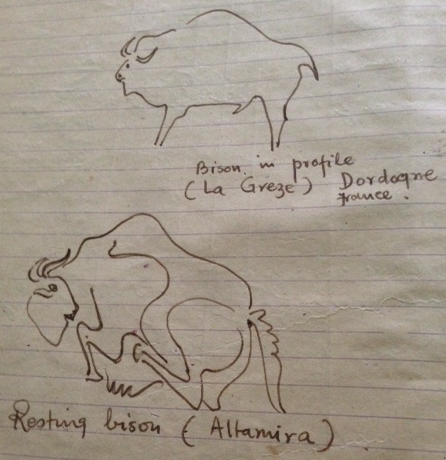 Bison in profile
(La Greze) Dordogne
France.
Resting bison (Altamira)